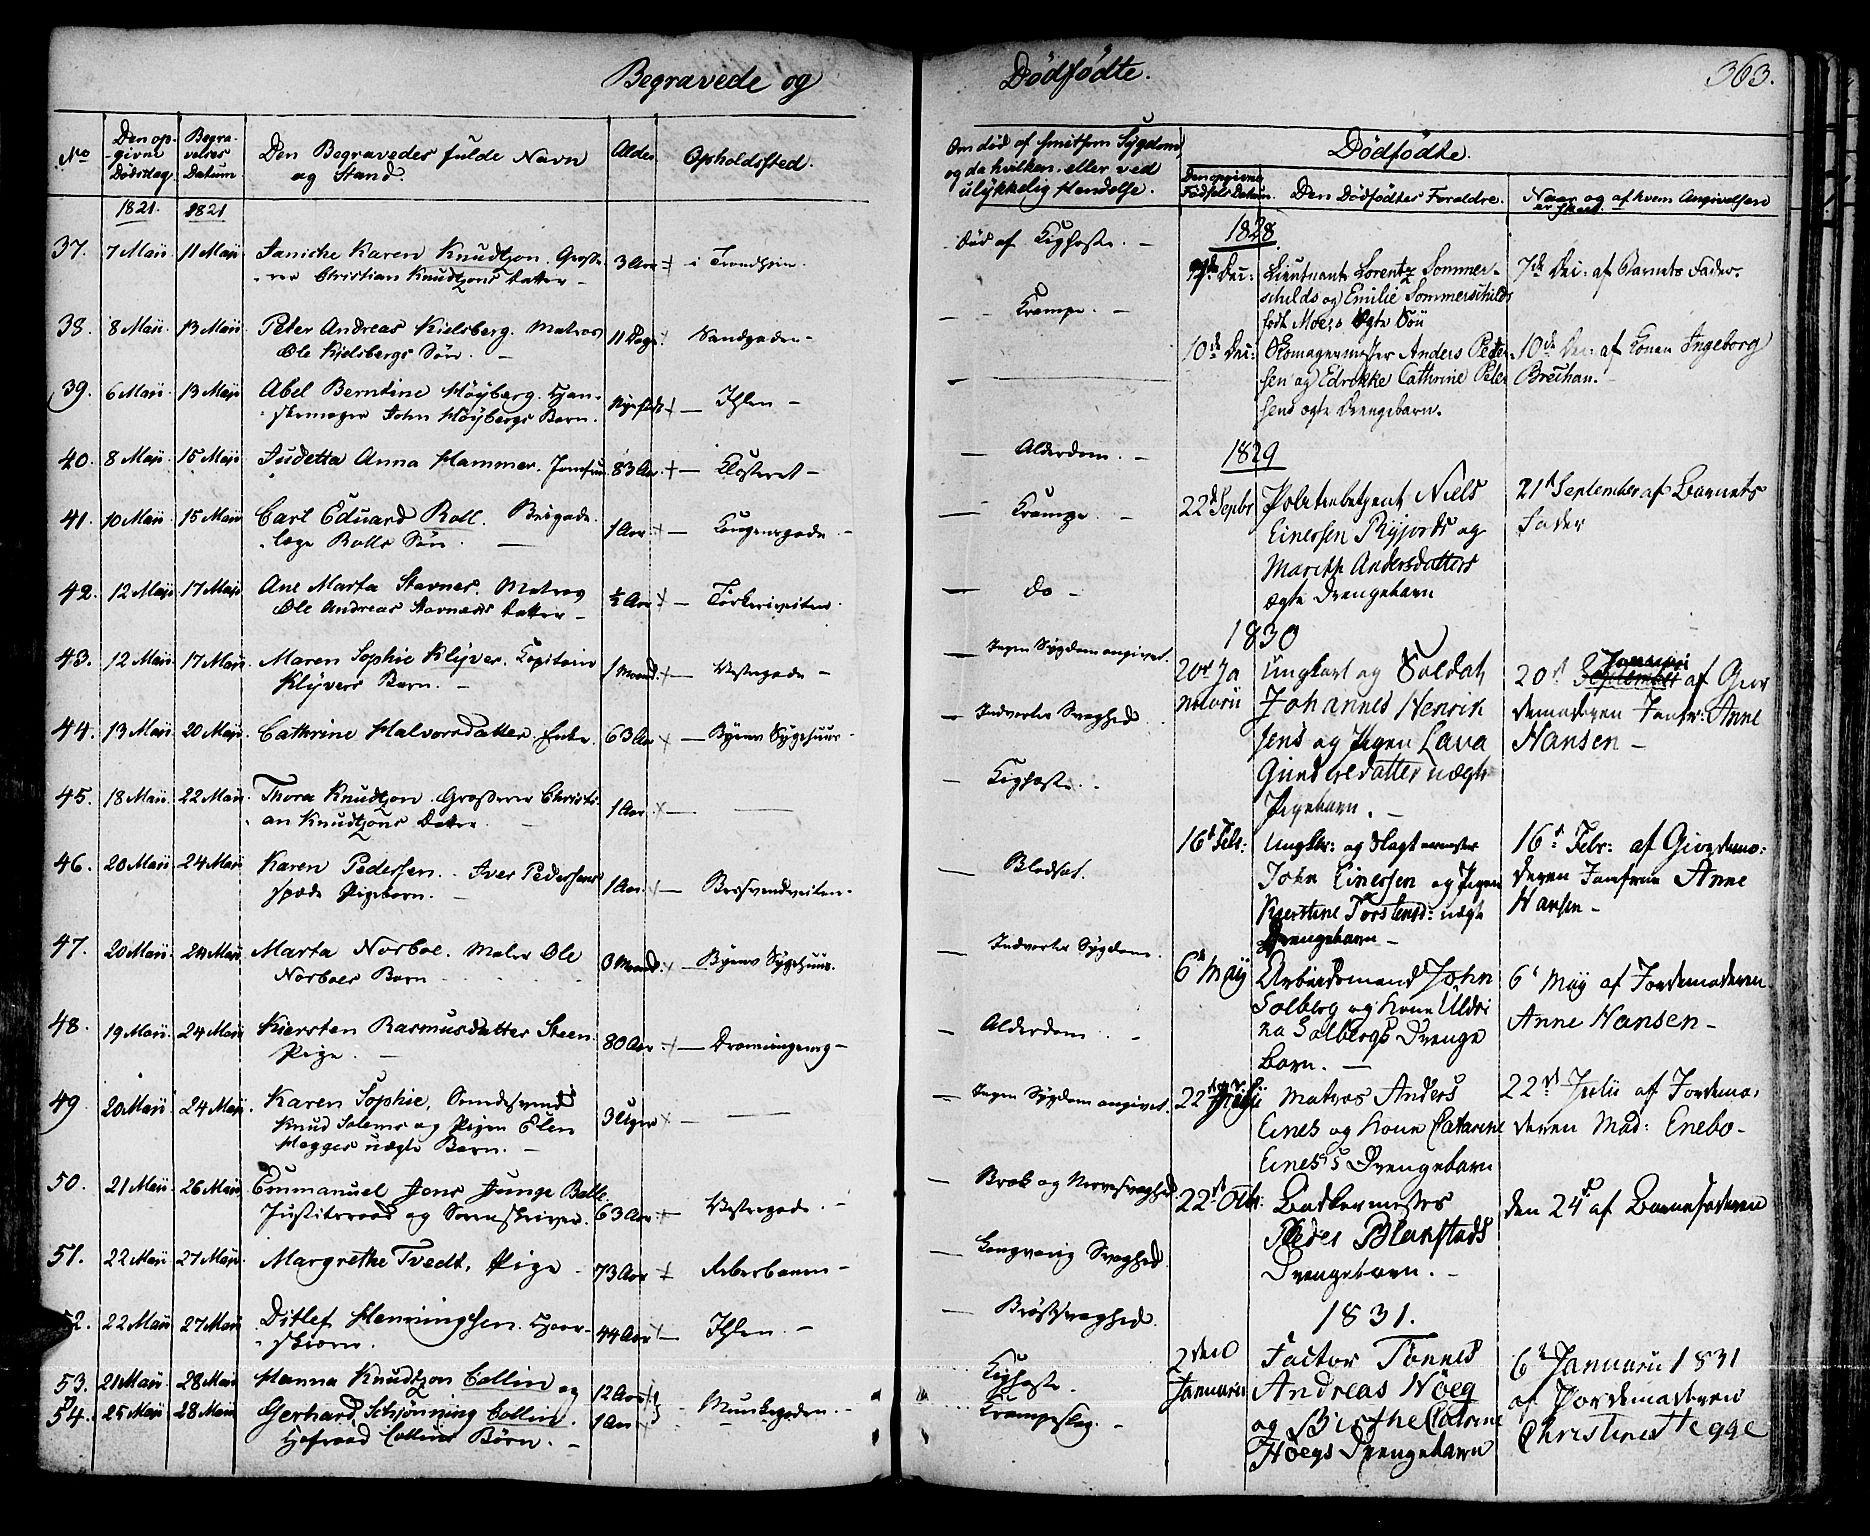 Begravede og Dødfødte.
363.
No
Den op-
givne
Dødsdag.
Begra-
velses
Datum.
Den Begravedes fulde Navn
og Stand.
Alder.
Opholdssted.
Om död af smitsom Sÿgdom,
og da hvilken, eller ved
ulÿkkelig Hendelse.
Dødfødte.
Den opgivne
Fødsels Datum.
Den Dödfödtes Forældre.
Naar og af hvem Angivelsen
er skeet.
1821. 1821
37. 7 Maii. 11 Maii. Janiche Karen Knudtzon. Grosse-
rer Christian Knudtzons Datter – 3 Aar + i Trondhiem. – död af Kighoste. –
38. 8 Maii. 13 Maii. Peter Andreas Kielsberg. Matros
Ole Kielsbergs Sön. – 11 Dage Sandgaden – – Krampe. –
39. 6 Maii. 13 Maii. Abel Berntine Höÿberg. Han-
skemager John Höÿbergs Barn. + – Ihlen – –
40. 8 Maii 15 Maii Judetta Anna Hammer. Jomfru 83 Aar. + – Klosteret – – Alderdom. –
41. 10 Maii. 15 Maii Carl Eduard Roll. Brigade-
læge Rolls Sön. – 1 Aar + – Kongensgade. – – Krampe. –
42. 12 Maii. 17 Maii. Ane Marta Stavnes. Matros
Ole Andreas Stavnæs Datter – ½ Aar + – – do –
43. 12 Maii. 17 Maii. Maren Sophie Klÿver. Capitain
Klÿvers Barn. – 1 Maaned. + – Vestregade – – Ingen Sÿgdom angivet.
44. 13 Maii. 20 Maii. Cathrine Halvorsdatter. Enke. 63 Aar + – Bÿens Sÿgehuus. – Indvortes Svaghed
45. 18 Maii. 22 Maii. Thora Knudtzon. Grosserer Christi-
an Knudtzons Datter. 1 Aar. + – – Kighoste.
46. 20 Maii. 24 Maii. Karen Pedersen. Iver Pedersens
spæde Pigebarn. – 1 Aar. + – – Blodsot.
47. 20 Maii. 24 Maii. Marta Norboe. Maler Ole
Norboes Barn 3 Maaned. + – Bÿens Sÿgehuus. – Indvortes Sÿgdom.
48. 19 Maii. 24 Maii. Kiersten Rasmusdatter Steen
Pige. – 80 Aar + – – Alderdom. –
49 20 Maii 24 Maii. Karen Sophie, Svendesvend
Knud Solems og Pigen Elen
Hagges uægte Barn. – 3 Uger + – – Ingen Sÿgdom angivet.
50. 21 Maii 26 Maii Emmanuel Jens Junge Balle
Justitsraad og Sorenskriver. 63 Aar + – Vestregade. – – Brok og Nervesvaghed
51. 22 Maii 27 Maii. Margrethe Tvedt, Pige – 73 Aar + Reberbanen – – Langvarig Svaghed.
52. 22 Maii 27 Maii Ditlef Henningsen. 44 Aar + – Ihlen. – – Brÿstsvaghed.
53. 21 Maii. 28 Maii. Hanna Knudtzon Collin og 12 Aar Kighoste.
54. 25 Maii 28 Maii. Gerhard Schjönning Collin. 1 Aar Munkegaden. – Krampeslag. –
Hofraad Collins Börn. –
1828.
7de Dec: Lieutnant Lorentz Sommer-
schilds og Emilie Sommerschilds
född Moers ægte Sön 7de Dec: af Barnets Fader.
10de Dec: Skomagermester Anders Peter-
sen og Edrikke Cathrine Peter-
sens ægte Drengebarn. 10de Dec: af Konen Ingeborg
Brechan. –
1829
22d Septbr Politiebetjent Niels
Einersen Rÿjords og
Marith Andersdatters
ægte Drengebarn 21d September af Barnets
Fader
1830
20d Ja
nuarii Ungkarl og Soldat
Johannes Henrik
sens og Pigen Lava
Gundersdatter uægte
Pigebarn. – 20d Januari September af Gior
demoderen Jomfr: Anne
Hansen –
16d Febr: Ungkar: og Slagtermester
John Einersen og Pigen
Kierstine Torstensd: uægte
Drengebarn – 16d Febr: af Giordemo-
deren Jomfrue Anne
Hansen –
6d Maÿ Arbeidsmand John
Solberg og Kone Uldri
na Solbergs Drenge
barn. – 6d Maÿ af Jordemoderen
Anne Hansen –
22d Julii Matros Anders
Eines og Kone Catarine
Eines's Drengebarn 22d Julii af Jordemo-
deren Mad: Enebo –
22d Octbr: Bødkermester
Peder Blekstads
Drengebarn. – den 24d af Barnefaderen
1831.
2den
Januarii Factor Tönnes
Andreas Höeg
og Birthe Catrine
Höegs Drengebarn 6d Januarii 1831
af Jordemoderen
Christine Hegge